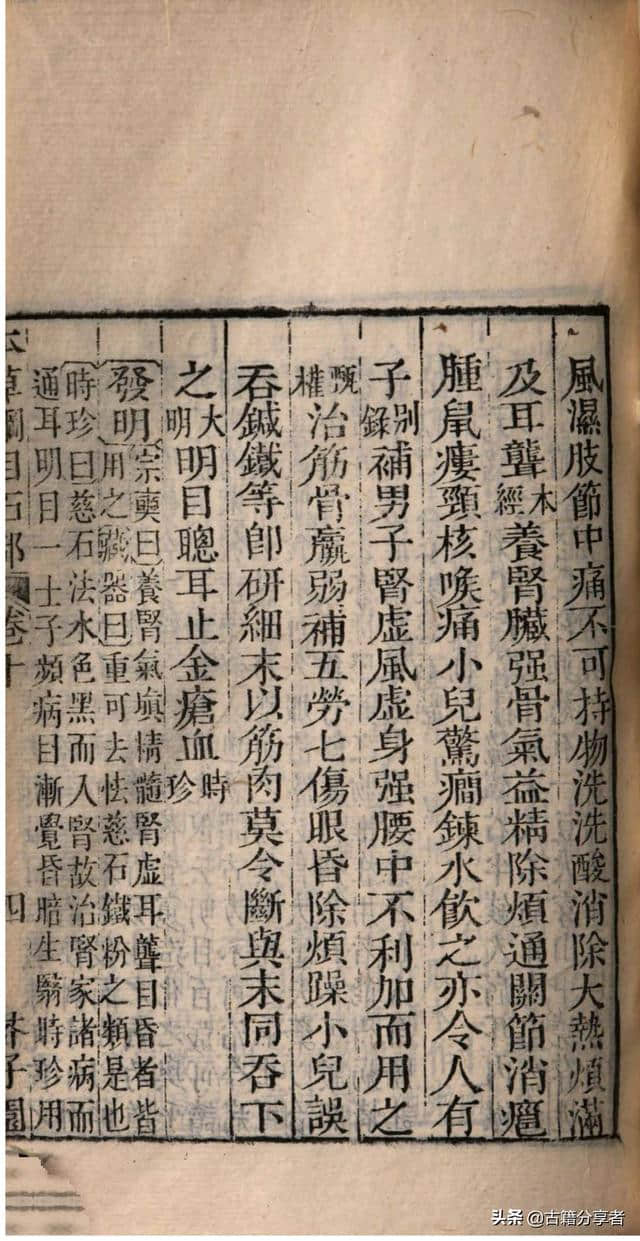 風濕肢節中痛不可持物洗洗酸消除大熱煩滿
及耳聾本經養腎臟强骨氣益精除煩通關節消癰
腫鼠瘻頸核喉痛小兒驚癎鍊水飲之亦令人有
子别錄補男子腎虚風虚身强腰中不利加而用之
甄權治筋骨羸弱補五勞七傷眼昏除煩躁小兒誤
吞鍼鐵等即研細末以筋肉莫令斷與末同吞下
之大明明目聰耳止金瘡血時珍
發明宗奭曰養腎氣填精髓腎虚耳聾目昏者皆
用之藏器曰重可去怯慈石鐵粉之類是也
時珍曰慈石法水色黑而入腎故治腎家諸病而
通耳明目一士子頻病目漸覺昏暗生翳時珍用
本草綱目石部 卷十 四 芥子園
头条 @古籍分享者